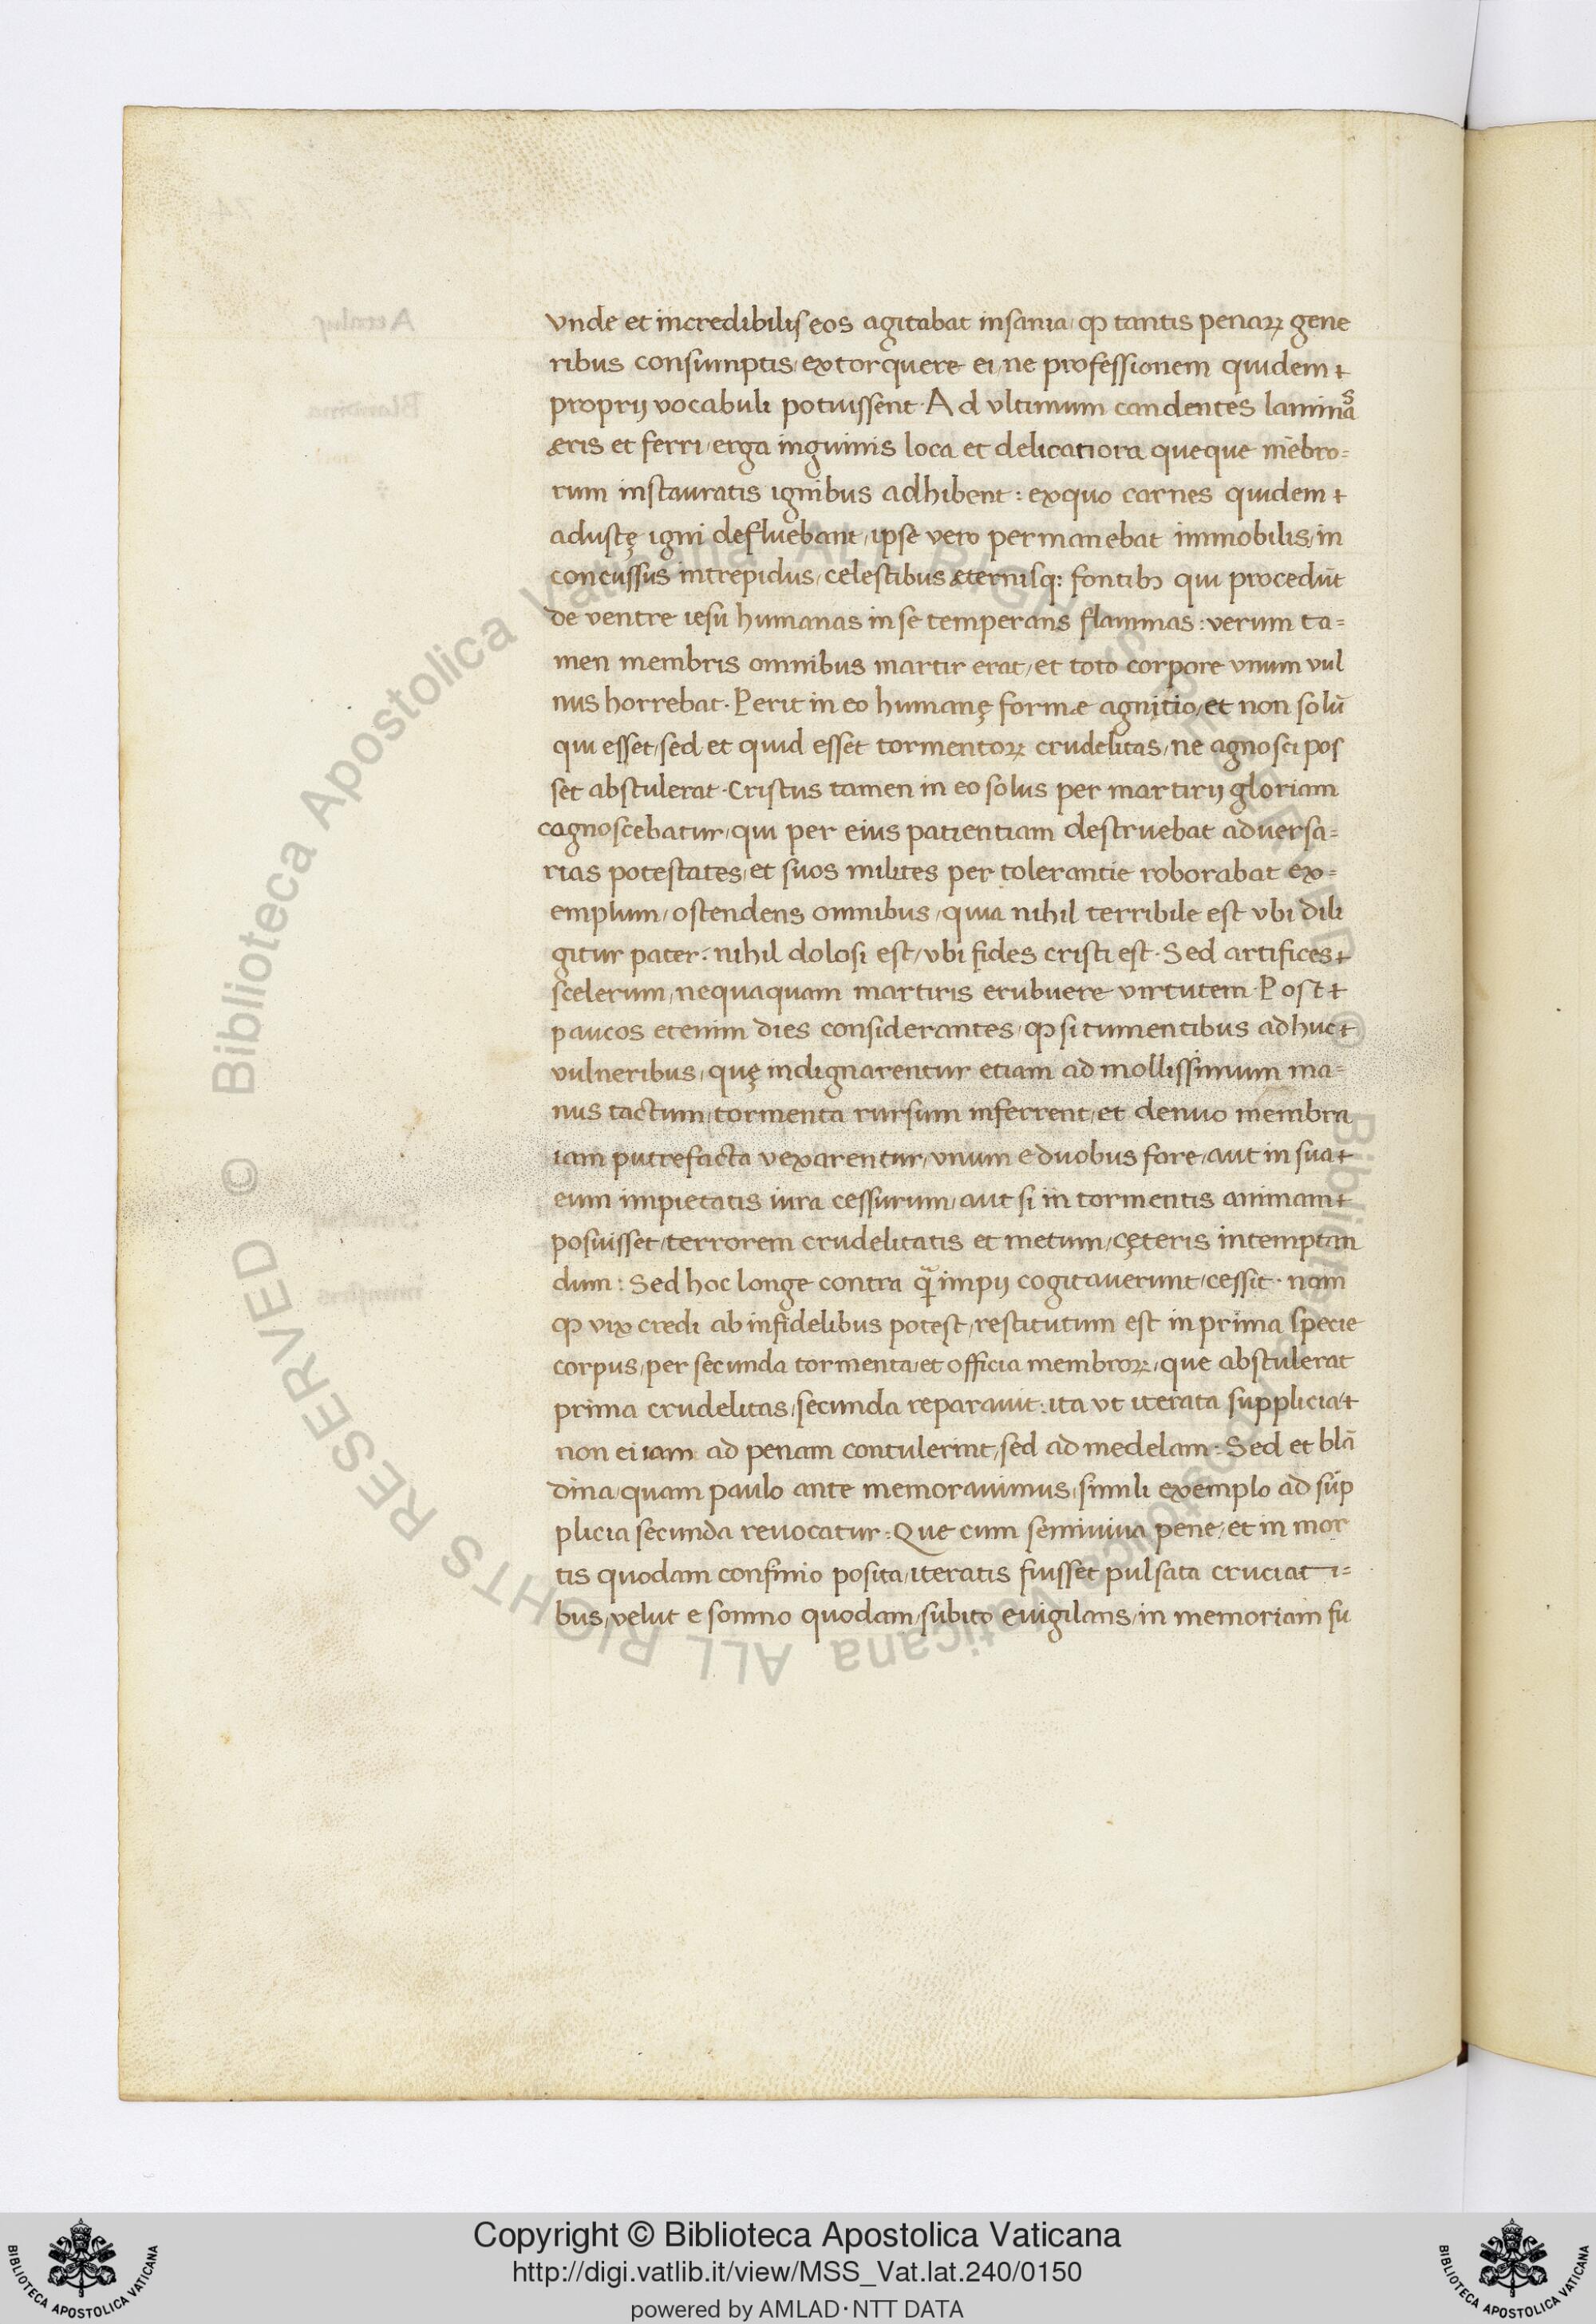 vnde et incredibilis eos agitabat insania, ꝙ tantis penaꝝ gene
ribus consumptis, extorquere ei, ne professionem quidem
proprij vocabuli potuissent. Ad vltimum candentes laminas
æris et ferri, erga inguinis loca et delicatiora queque mēbro=
rum instauratis ignibus adhibent: exquo carnes quidem
adustę igni defluebant, ipse vero permanebat immobilis, in
concussus intrepidus, celestibus æternisq: fontibꝫ qui procedūt
de ventre iesu humanas in se temperans flammas: verum ta=
men membris omnibus martir erat, et toto corpore vnum vul
nus horrebat. Perit in eo humanę formæ agnitio, et non solū
qui esset, sed et quid esset tormentoꝝ crudelitas, ne agnosci pos
set abstulerat. Cristus tamen in eo solus per martirij gloriam
cagnoscebatur, qui per eius patientiam destruebat aduersa=
rias potestates, et suos milites per tolerantie roborabat ex=
emplum, ostendens omnibus, quia nihil terribile est vbi dili
gitur pater: nihil dolosi est, vbi fides cristi est. Sed artifices
scelerum, nequaquam martiris erubuere virtutem. Post
paucos etenim dies considerantes, ꝙ si tumentibus adhuc
vulneribus, quę indignarentur etiam ad mollissimum ma=
nus tactum, tormenta rursum inferrent, et denuo membra
iam putrefacta vexarentur, vnum e duobus fore, aut in sua
eum impietatis iura cessurum, aut si in tormentis animam
posuisset, terrorem crudelitatis et metum, cęteris intemptan
dum: Sed hoc longe contra ꝙ̃ impij cogitauerunt, cessit. nam
ꝙ vix credi ab infidelibus potest, restitutum est in prima specie
corpus, per secunda tormenta, et officia membroꝝ, que abstulerat
prima crudelitas, secunda reparauit: ita vt iterata supplicia
non ei iam ad penam contulerint, sed ad medelam: Sed et blā
dina, quam paulo ante memorauimus, simili exemplo ad sup
plicia secunda reuocatur: Que cum seminiua pene, et in mor
tis quodam confinio posita, iteratis fuisset pulsata cruciati=
bus, velut e somno quodam, subito euigilans, in memoriam fu
© Biblioteca Apostolica Vaticana ALL RIGHTS RESERVED © Biblioteca Apostolica Vaticana ALL RIGHTS RESERVED
Copyright © Biblioteca Apostolica Vaticana
http://digi.vatlib.it/view/MSS_Vat.lat.240/0150
powered by AMLAD·NTT DATA
BIBLIOTECA APOSTOLICA VATICANA
BIBLIOTECA APOSTOLICA VATICANA